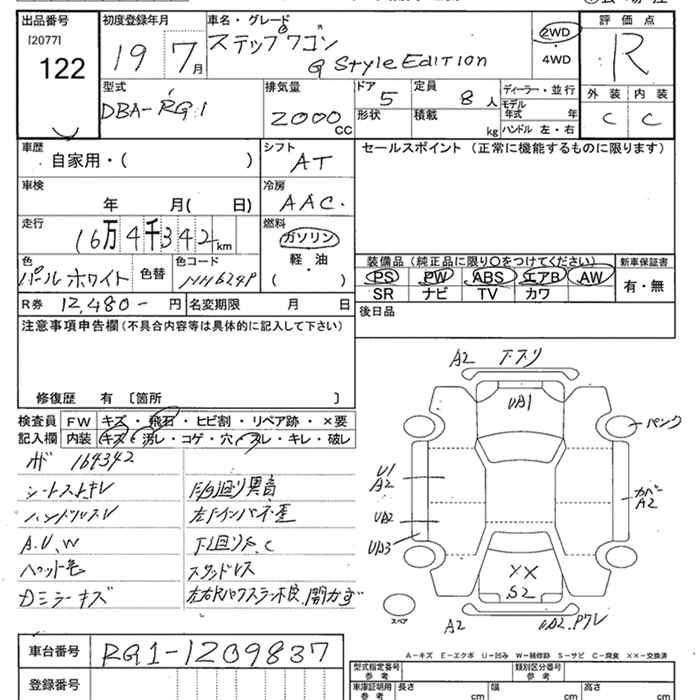 出品番号
[2077]
122
初度登録年月
19 7月
車名・グレード
ステップワゴン
G Style Edition
2WD
・
4WD
評価点
R
外装 内装
C C
型式
DBA-RG1
排気量
2000cc
ドア
5
形状
定員
8人
積載
kg
ディーラー・並行
モデル年式 年
ハンドル 左・右
車歴
自家用・( )
シフト
AT
セールスポイント(正常に機能するものに限ります)
車検
年 月( 日)
冷房
AAC.
走行
16万4千342km
燃料
ガソリン
軽・油
( )
色
パールホワイト
色替
色コード
NH624P
装備品(純正品に限り○をつけてください)
PS PW ABS エアB AW
SR ナビ TV カワ
新車保証書
有・無
R券 12,480- 円
名変期限 月 日
後日品
注意事項申告欄(不具合内容等は具体的に記入して下さい)
修復歴 有 〔箇所 〕
検査員記入欄
FW キズ・飛石・ヒビ割・リペア跡・×要
内装 キズ・汚レ・コゲ・穴・スレ・キレ・破レ
164342
シートスレキレ
ハンドルスレ
A.U.W
F/G廻り異音
下廻りS.C
スタッドレス
A2 下スリ
UA1
パンク
U1
A2
UA2
UA3
カバー
A2
××
S2
A2
スペア
A-キズ E-エクボ U-凹み W-補修跡 S-サビ C-腐食 ××-交換済
車台番号 RG1-1209837
登録番号
型式指定番号
参考
類別区分番号
参考
車庫証明用
参考
長さ cm 幅 cm 高さ cm